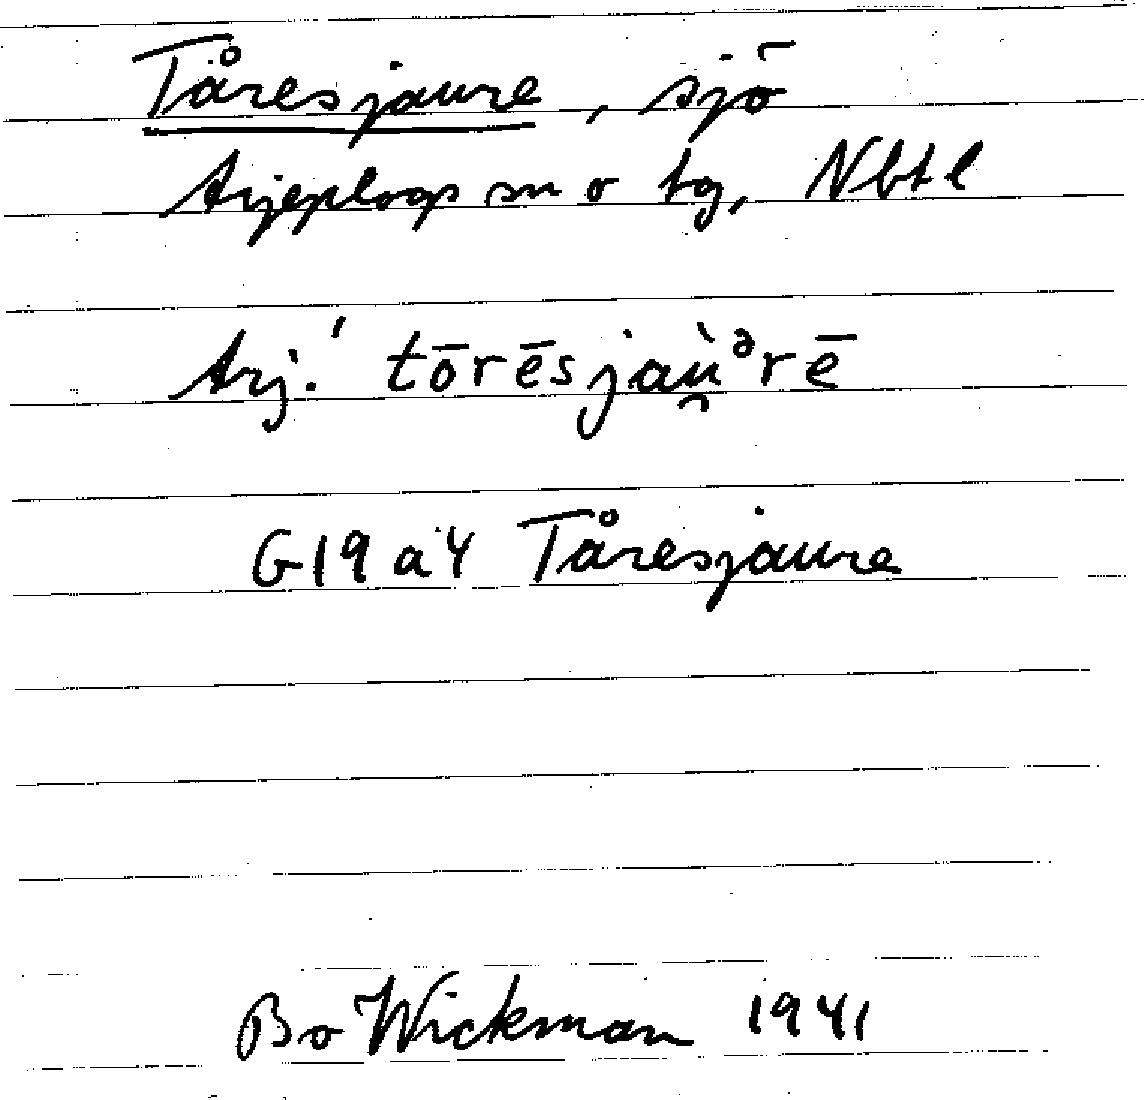 Tåresjaure, sjö
Arjeplogs sn o tg, Nbtl
Arj.' tōrēsjaù̯ᵊrē
G19 a4 Tåresjaure
Bo Wickman 1941